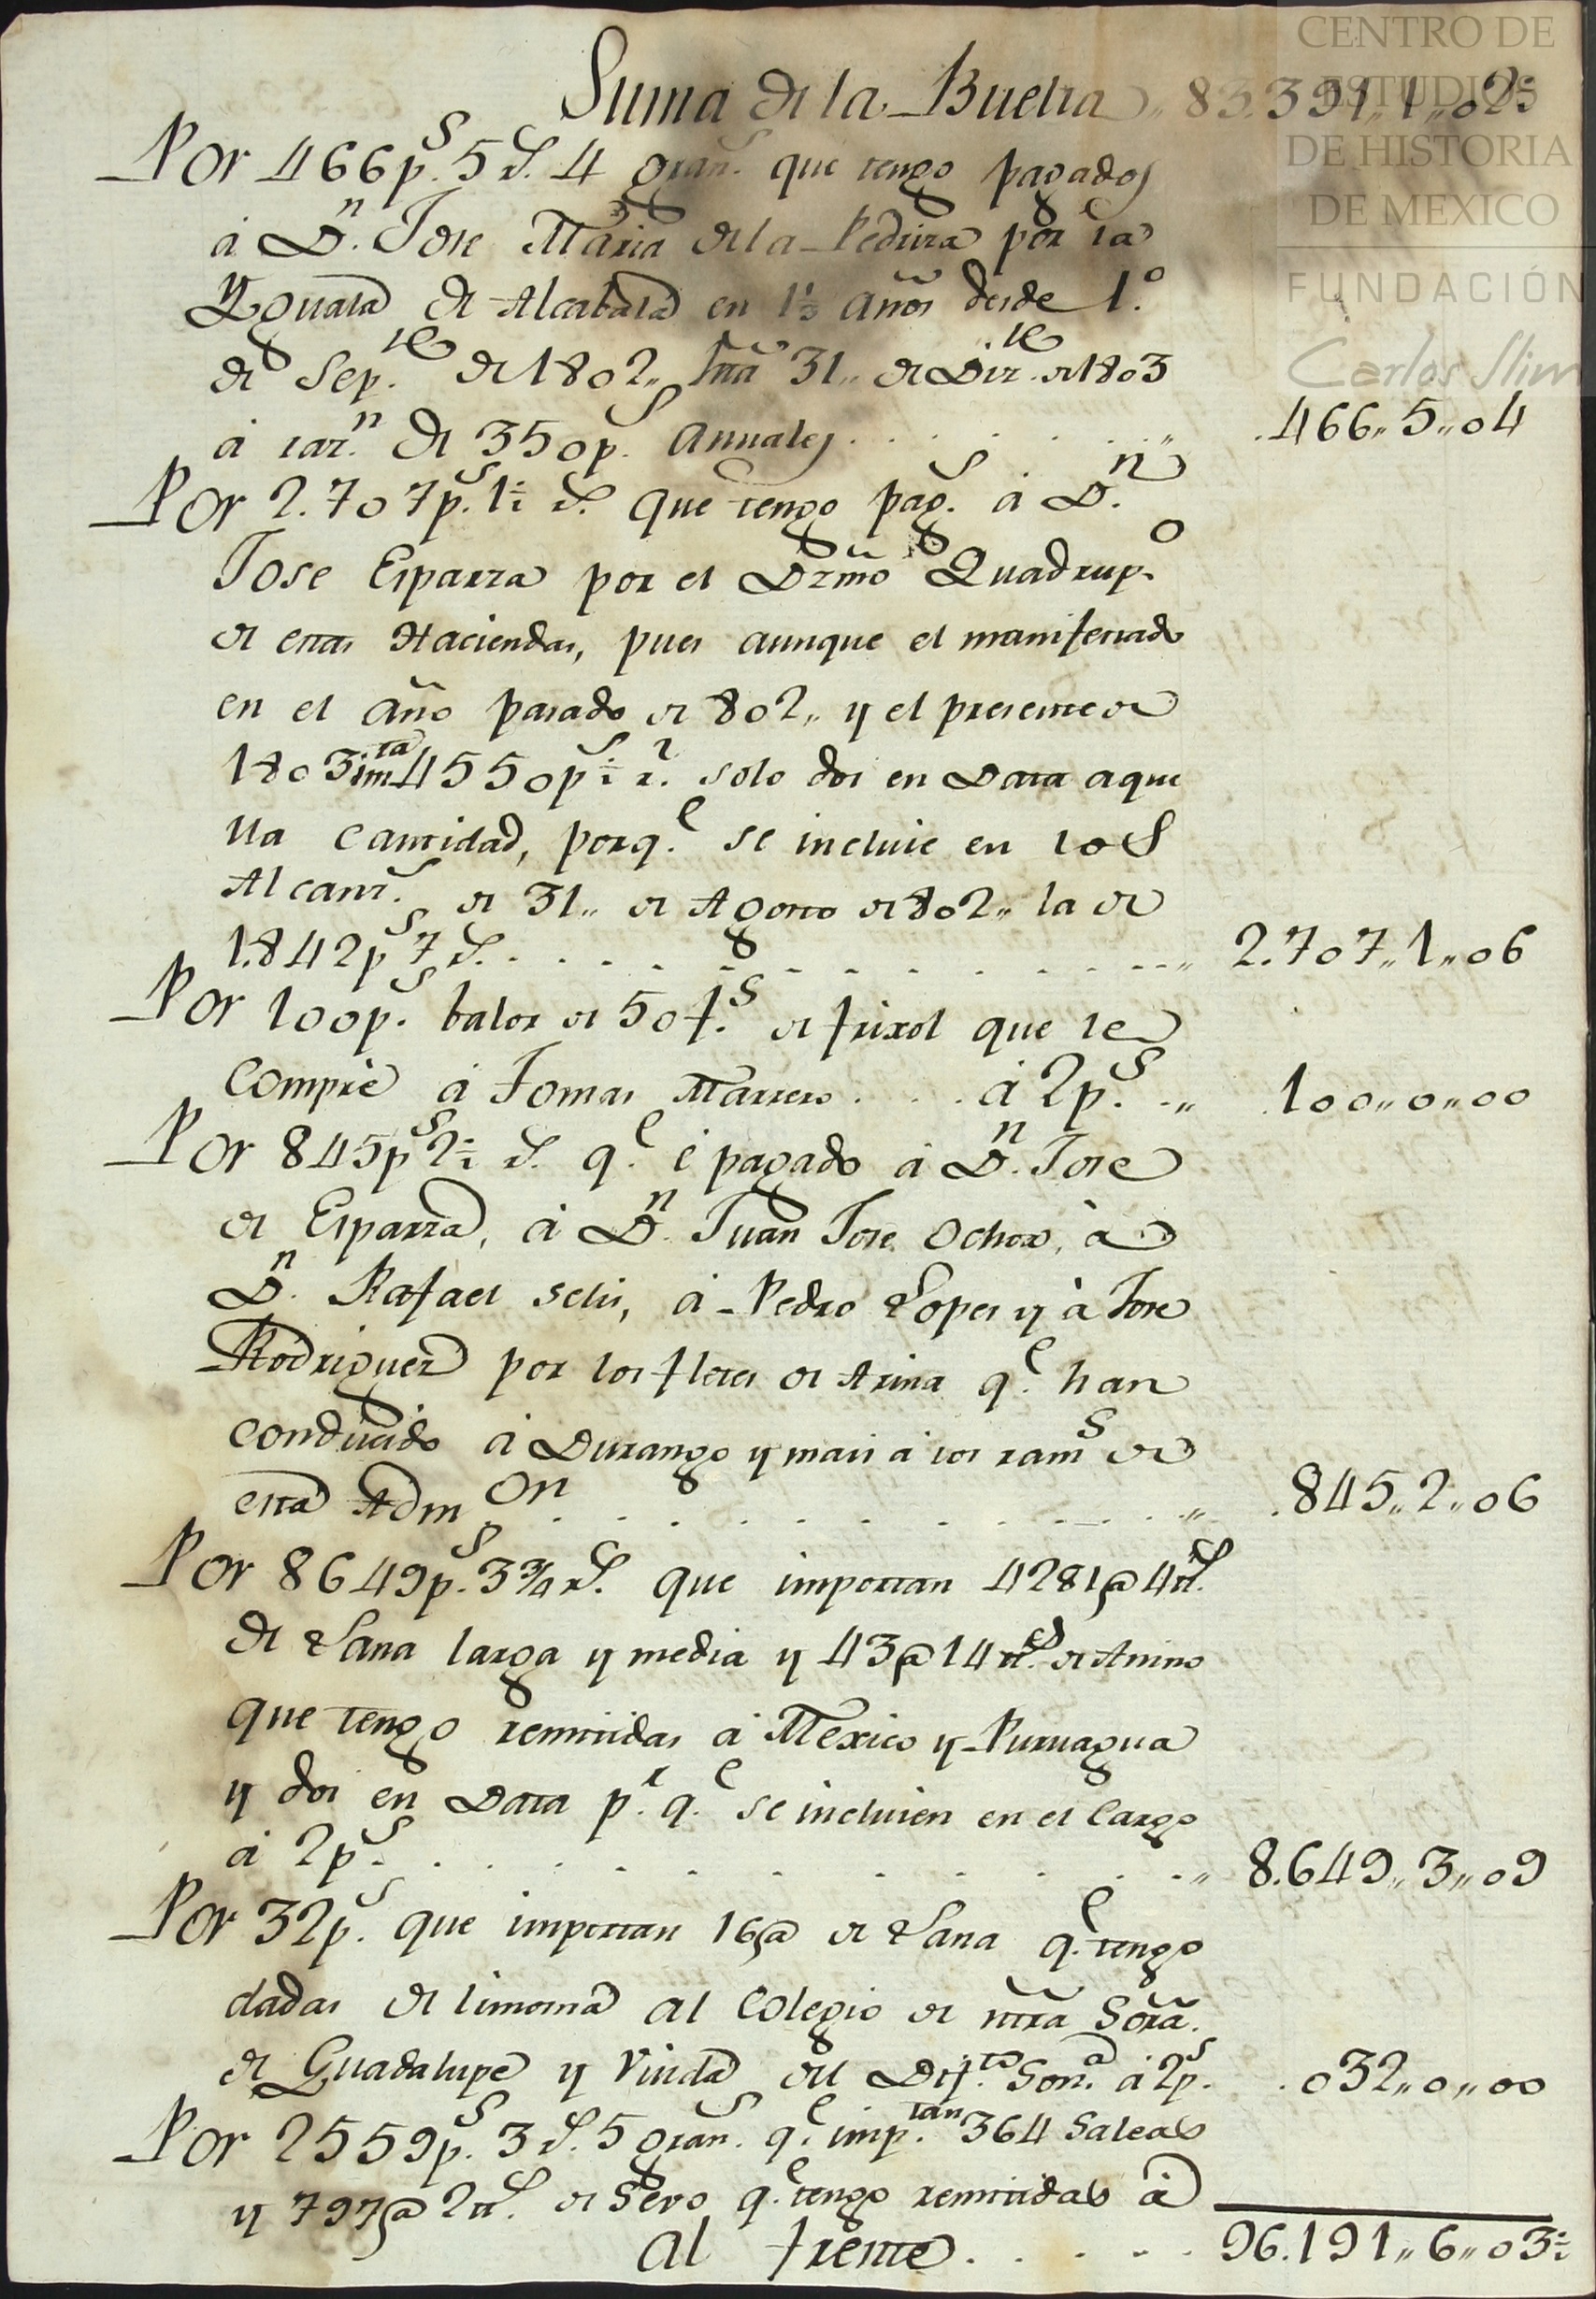 CENTRO DE
ESTUDIOS
DE HISTORIA
DE MEXICO
FUNDACIÓN
Carlos Slim
Suma de la Buelta 83.391,,1,,02½
Por 466p.s 5 r.s 4 gran.s que tengo pagados
á D.n Jose Maria de la Pedriza por la
Yguala de Alcabala en 1⅓ años desde 1.º
de Sep.re de 1802,, hta 31,, de Diz.re de 1803
á raz.n de 350p.s Annuales . . . . . . ,, 466,,5,,04
Por 2.707p.s 1½ r.s que tengo pag.s á D.n
Jose Esparza por el Dzmo Quadrup.o
de estas Haciendas, pues aunque el manifestado
en el año pasado de 802,, y el presente de
1803 imta 4550p.s ½ r.l solo doi en Data aque
lla cantidad, porq.e se incluie en los
Alcanz.s de 31,, de Agosto de 802,, la de
1.842p.s 7 r.s . . . . . . . . . . . ,, 2.707,,1,,06
Por 100p.s balor de 50 f.s de frixol que le
compré á Tomas Marrero . . . á 2p.s . ,, 100,,0,,00
Por 845p.s 2½ r.s q.e é pagado á D.n Jose
de Esparza, á D.n Juan Jose Ochoa, á
D.n Rafael Selis, á Pedro Lopes y á Jose
Rodriguez por los fletes de Arina q.e han
conducido á Durango y mais á los ram.s de
esta Adm.on . . . . . . . . . . . ,, 845,,2,,06
Por 8649p.s 3¾ r.s que importan 4281@ 4 lls.
de Lana larga y media y 43@ 14 lls. de Anino
que tengo remitidas á Mexico y Puruagua
y doi en Data p.r q.e se incluien en el Cargo
á 2p.s . . . . . . . . . . . ,, 8.649,,3,,09
Por 32p.s que importan 16@ de Lana q.e tengo
dadas de limosna al Colegio de ntra Sora.
de Guadalupe y Viuda del Dif.to Son.a á 2p.s . 032,,0,,00
Por 2559p.s 3 r.s 5 gran.s q.e imp.tan 364 Saleas
y 797@ 2 lls. de Sevo q.e tengo remitidas á
al frente . . . . . 96.191,,6,,03½